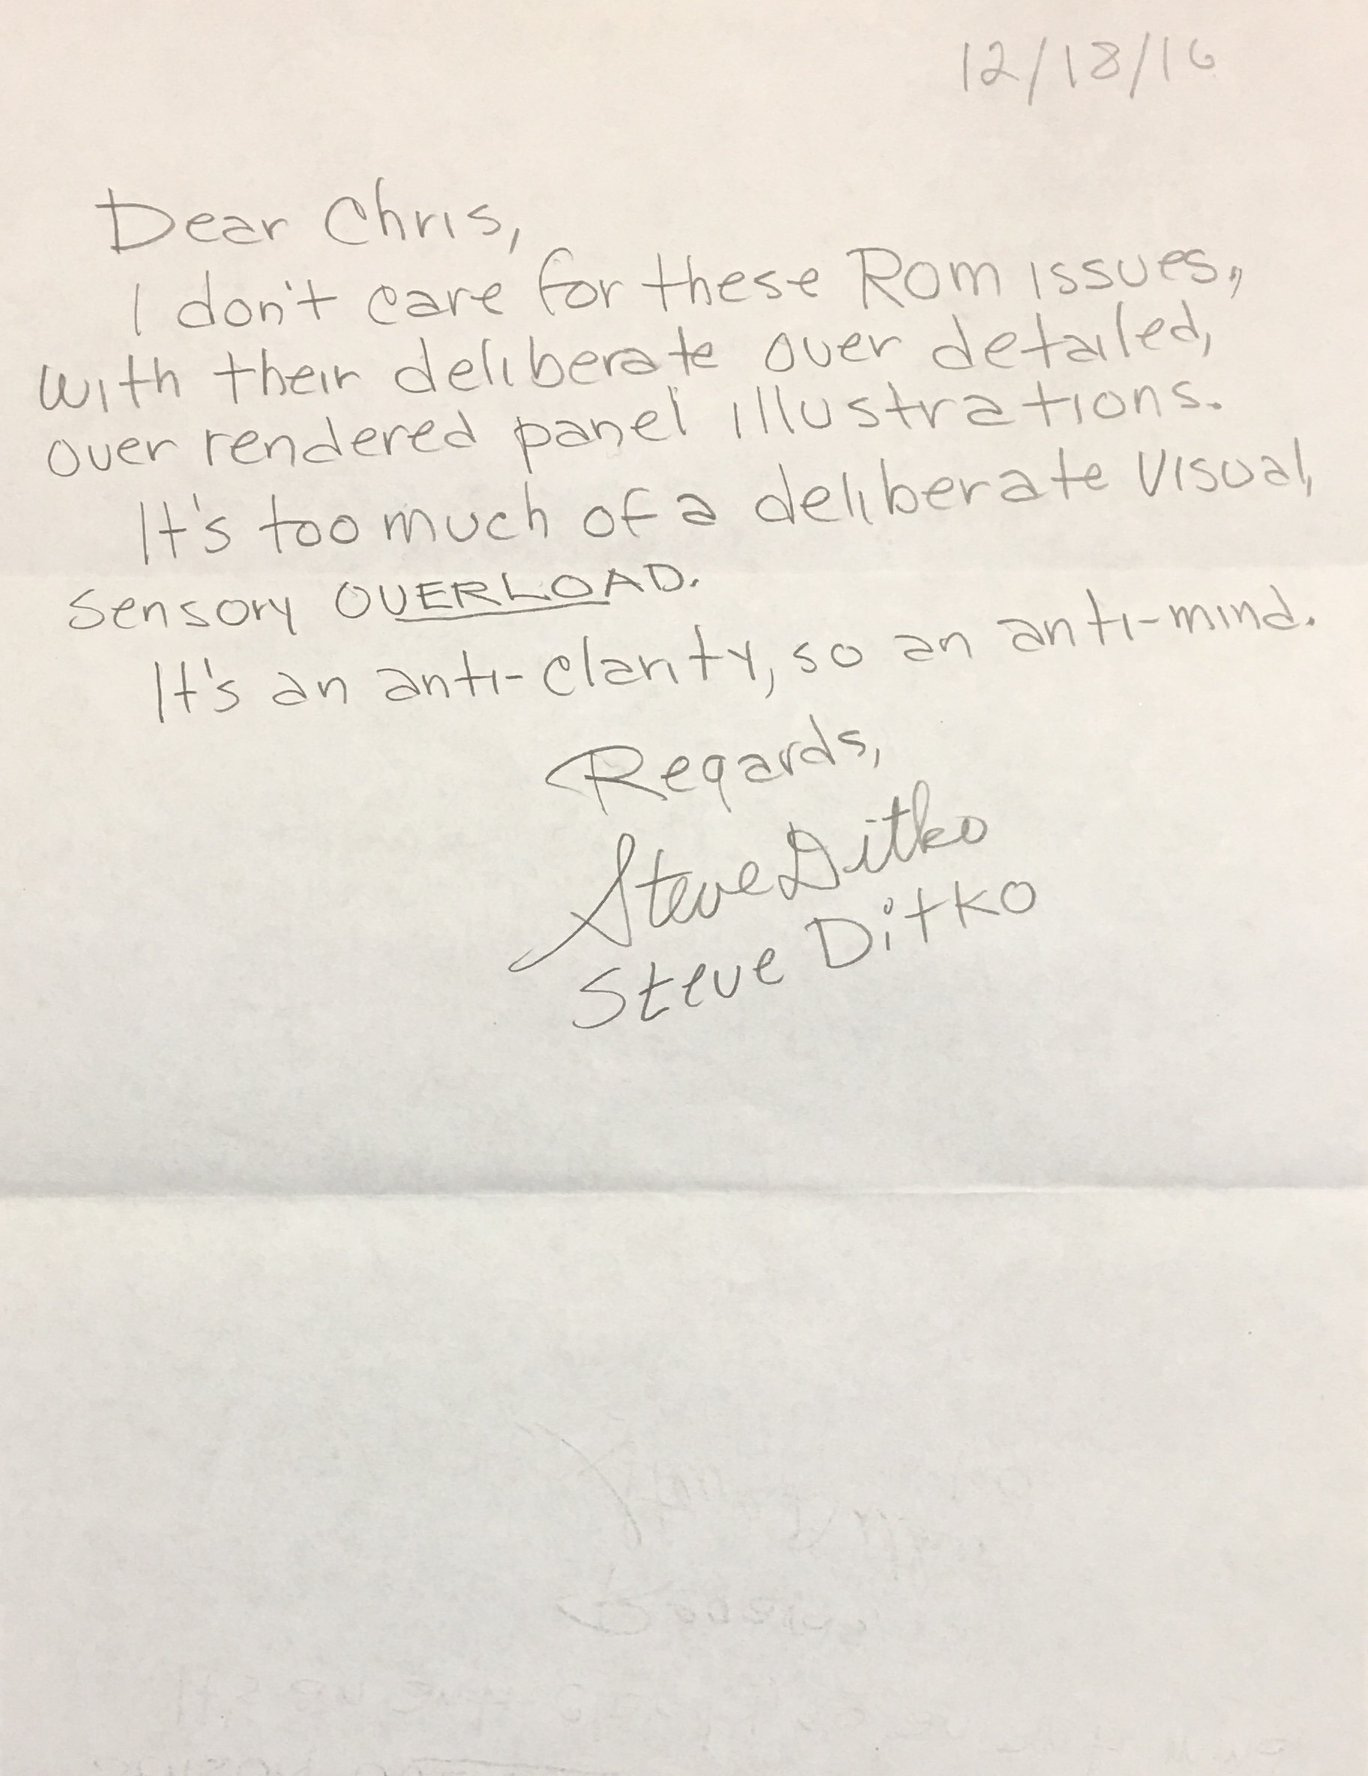 12/18/16
Dear Chris,
I don't care for these Rom issues,
with their deliberate over detailed,
over rendered panel illustrations.
It's too much of a deliberate visual,
sensory OVERLOAD.
It's an anti-clarity, so an anti-mind.
Regards,
Steve Ditko
Steve Ditko